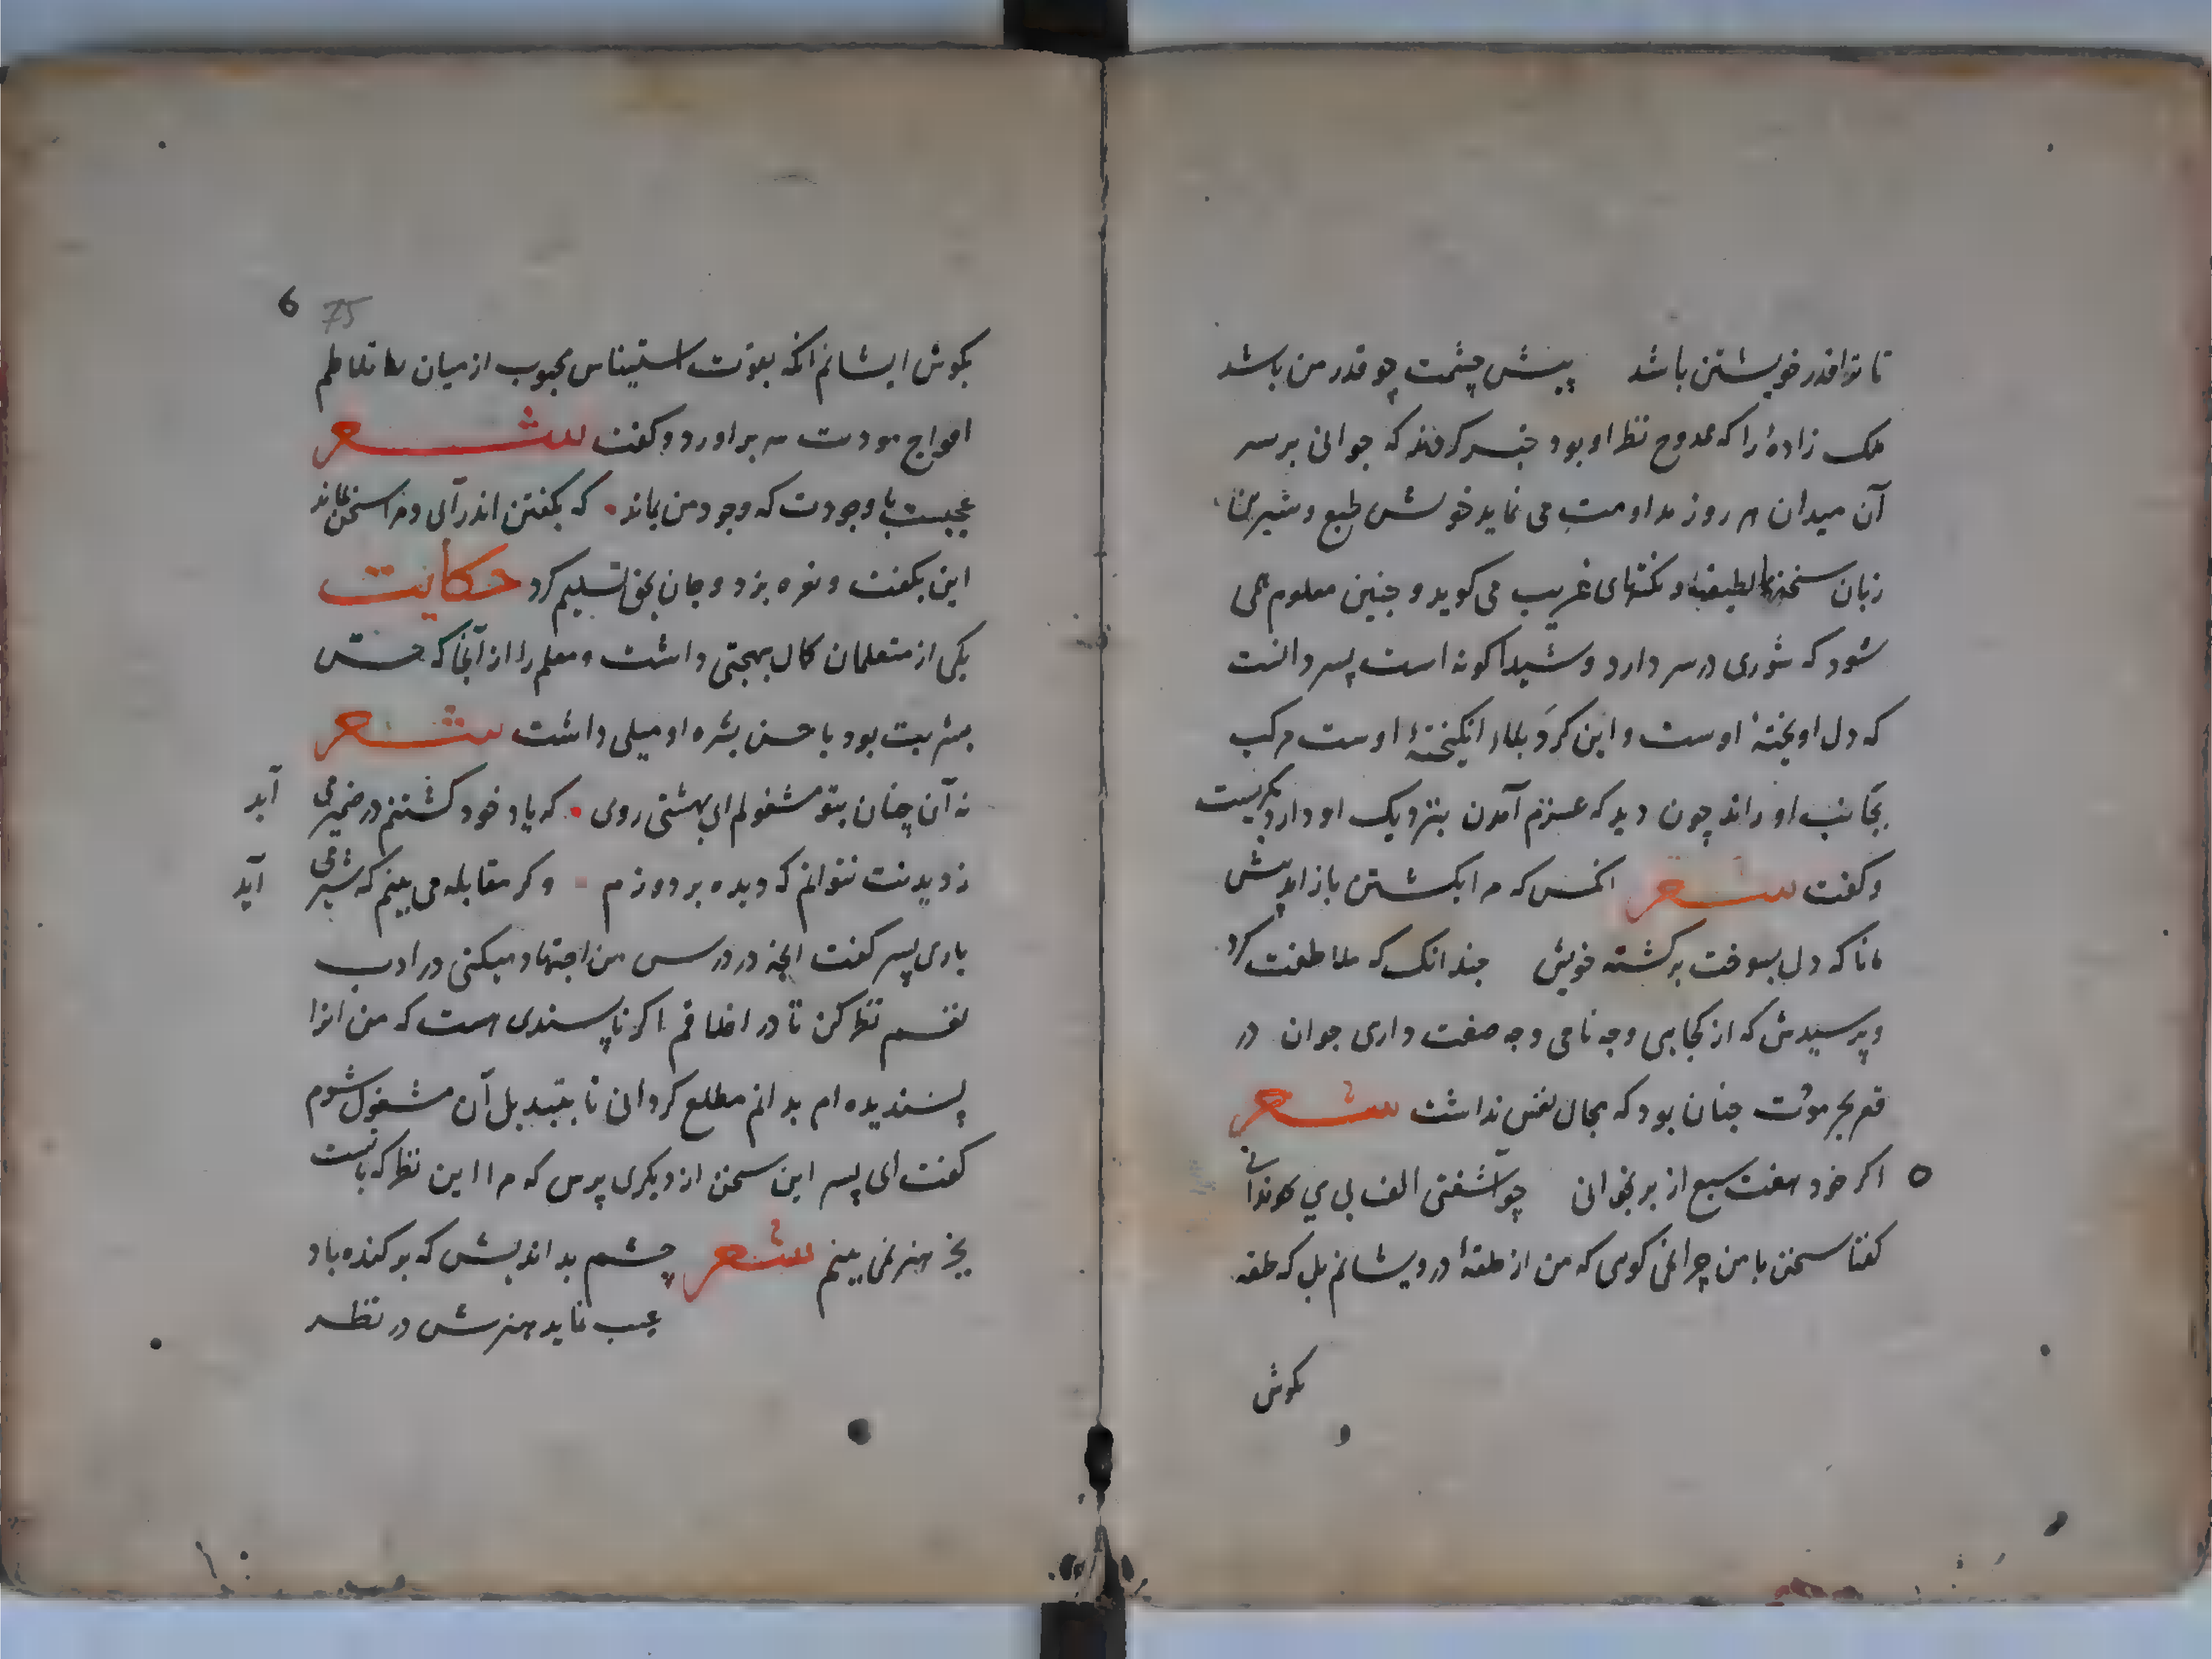 تا ترا قدر خویشتن باشد پیش چشمت چو قدر من باشد
ملک زادهٔ را که ممدوح نظر او بود خبر کردند که جوانی بر سر
آن میدان هر روز مداومت می نماید خوش طبع و شیرین
زبان سخنهای لطیف و نکتهای غریب می کوید و جنین معلوم همی
شود که شوری در سر دارد و شیدا کونه است پسر دانست
که دل اویختهٔ اوست و این کرد بلا انکیختهٔ اوست مرکب
بجانب او راند چون دید که عزم آمدن بنزدیک او دارد بکریست
و کفت شعر انکس که مرا بکشتن باز امد پیش
مانا که دل بسوخت بر کشته خویش جندانک که ملاطفت کرد
و پرسیدش که از کجایی و جه نامی و جه صفت داری جوان در
قعر بحر مودت جنان بود که مجال نفس نداشت شعر
اکر خود هفت سبع از بر بخوانی چو آشفتی الف بی تی ندانی
کفتا سخن با من چرا نمی کویی که من از حلقهٔ درویشانم بل که حلقه
بکوش
6 75
بکوش ایشانم انکه بقوت استیناس محبوب از میان تلاطم
امواج مودت سر براورد و کفت شعر
عجبست با وجودت که وجود من بماند که بکفتن اندر آی و مرا سخن بماند
این بکفت و نعره بزد و جان بحق تسلیم کرد حکایت
یکی از متعلمان کمال بهجتی داشت و معلم را از آنجا که حس
بشریت بود با حسن بشره او میلی داشت شعر
نه آن چنان بتو مشغولم ای بهشتی روی که یاد خود کشتنم در ضمیر می آید
ز دیدنت نتوانم که دیده بر دوزم و کر مقابله می بینم که تیر می آید
باری پسر کفت انچه در درس من اجتهاد میکنی در ادب
نفسم نظر کن تا در اخلاقم اکر ناپسندی هست که من انرا
پسندیده ام بدانم مطلع کردانی تا بتبدیل آن مشغول شوم
کفت ای پسر این سخن از دیکری پرس که مرا این نظر که باتست
بجز هنر نمی بینم شعر چشم بد اندیش که بر کنده باد
عیب نماید هنرش در نظر